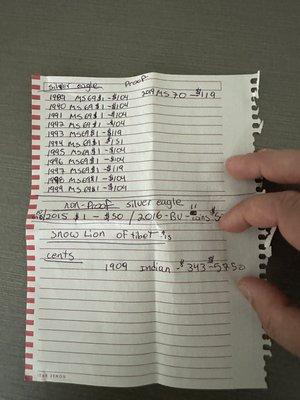 Silver eagle Proof
1989 MS69 $1 - $104 2019 MS 70 - $119
1990 MS69 $1 - $104
1991 MS69 $1 - $104
1992 MS69 $1 - $104
1993 MS69 $1 - $119
1994 MS69 $1 - $151
1995 MS69 $1 - $104
1996 MS69 $1 - $104
1997 MS69 $1 - $119
1998 MS69 $1 - $104
1999 MS69 $1 - $104
non-Proof silver eagle
2015 $1 - $50 / 2016-BU -
Snow Lion of tibet
cents
1909 Indian - $343 -